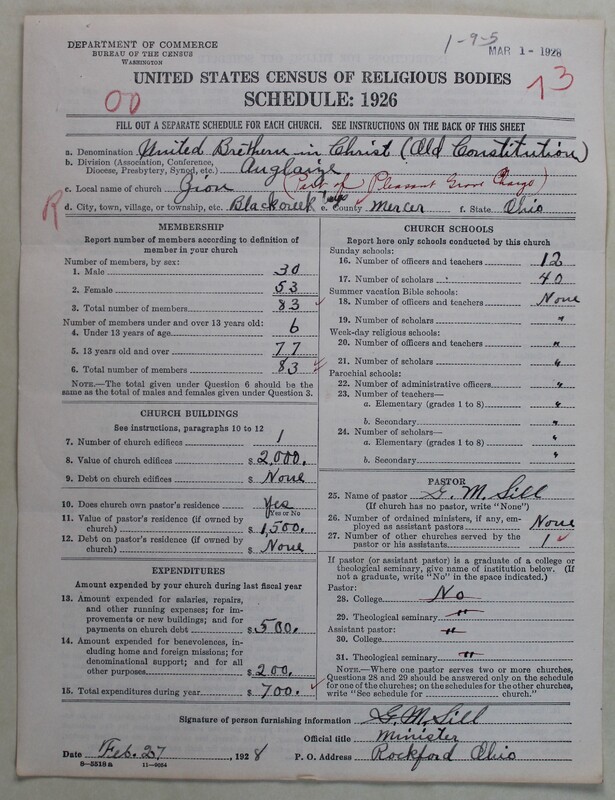 DEPARTMENT OF COMMERCE
BUREAU OF THE CENSUS
WASHINGTON
1-9-5
MAR 1 - 1928
UNITED STATES CENSUS OF RELIGIOUS BODIES
SCHEDULE: 1926
00
73
FILL OUT A SEPARATE SCHEDULE FOR EACH CHURCH. SEE INSTRUCTIONS ON THE BACK OF THIS SHEET
a. Denomination United Brethren in Christ (Old Constitution)
b. Division (Association, Conference, Diocese, Presbytery, Synod, etc.) Auglaize
c. Local name of church Zion (Part of Pleasant Grove Charge)
R
d. City, town, village, or township, etc. Blackcreek twp e. County Mercer f. State Ohio
MEMBERSHIP
Report number of members according to definition of member in your church
Number of members, by sex:
1. Male 30
2. Female 53
3. Total number of members 83
Number of members under and over 13 years old:
4. Under 13 years of age 6
5. 13 years old and over 77
6. Total number of members 83
NOTE.—The total given under Question 6 should be the same as the total of males and females given under Question 3.
CHURCH BUILDINGS
See instructions, paragraphs 10 to 12
7. Number of church edifices 1
8. Value of church edifices $ 2,000.
9. Debt on church edifices $ None
10. Does church own pastor's residence Yes
(Yes or No)
11. Value of pastor's residence (if owned by church) $ 1,500.
12. Debt on pastor's residence (if owned by church) $ None
EXPENDITURES
Amount expended by your church during last fiscal year
13. Amount expended for salaries, repairs, and other running expenses; for improvements or new buildings; and for payments on church debt $ 500.
14. Amount expended for benevolences, including home and foreign missions; for denominational support; and for all other purposes $ 200.
15. Total expenditures during year $ 700.
CHURCH SCHOOLS
Report here only schools conducted by this church
Sunday schools:
16. Number of officers and teachers 12
17. Number of scholars 40
Summer vacation Bible schools:
18. Number of officers and teachers None
19. Number of scholars "
Week-day religious schools:
20. Number of officers and teachers "
21. Number of scholars "
Parochial schools:
22. Number of administrative officers "
23. Number of teachers—
a. Elementary (grades 1 to 8) "
b. Secondary "
24. Number of scholars—
a. Elementary (grades 1 to 8) "
b. Secondary "
PASTOR
25. Name of pastor G. M. Sill
(If church has no pastor, write "None")
26. Number of ordained ministers, if any, employed as assistant pastors None
27. Number of other churches served by the pastor or his assistants 1
If pastor (or assistant pastor) is a graduate of a college or theological seminary, give name of institution below. (If not a graduate, write "No" in the space indicated.)
Pastor:
28. College No
29. Theological seminary "
Assistant pastor: "
30. College
31. Theological seminary "
NOTE.—Where one pastor serves two or more churches, Questions 28 and 29 should be answered only on the schedule for one of the churches; on the schedules for the other churches, write "See schedule for church."
Signature of person furnishing information G. M. Sill
Official title Minister
Date Feb. 27, 1928 P. O. Address Rockford Ohio
8-5518a 11-9054